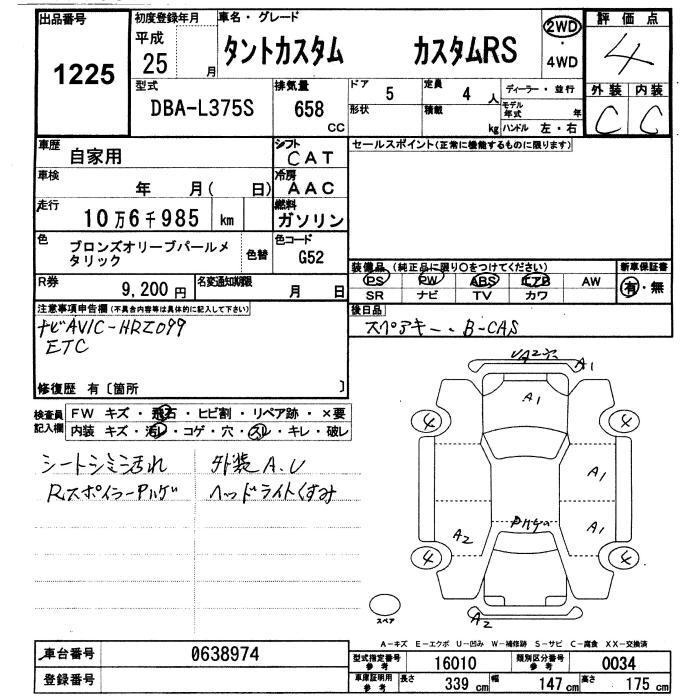 出品番号
1225
初度登録年月
平成
25 月
車名・グレード
タントカスタム カスタムRS
2WD
・
4WD
評価点
4
外装 内装
C C
型式
DBA-L375S
排気量
658
CC
ドア 5
形状
定員 4 人
積載 kg
ディーラー・並行
モデル年式 年
ハンドル 左・右
車歴
自家用
シフト
CAT
セールスポイント(正常に機能するものに限ります)
車検
年 月( 日)
冷房
AAC
走行
10万6千985 km
燃料
ガソリン
色
ブロンズオリーブパールメ
タリック
色替
色コード
G52
装備品 (純正品に限り○をつけてください) 新車保証書
PS PW ABS エアB AW 有・無
SR ナビ TV カワ
R券
9,200 円
名変通知期限
月 日
後日品
スペアキー・B-CAS
注意事項申告欄(不具合内容等は具体的に記入して下さい)
ナビAVIC-HRZ099
ETC
修復歴 有〔箇所 〕
検査員
記入欄
FW キズ・飛石・ヒビ割・リペア跡・×要
内装 キズ・汚レ・コゲ・穴・スレ・キレ・破レ
シートシミ汚れ 外装A.U
RスポイラーPハゲ ヘッドライトくすみ
A1
A1
4 4
A1
Pハゲ
A2 A1
4 4
A2
スペア
A-キズ E-エクボ U-凹み W-補修跡 S-サビ C-腐食 XX-交換済
車台番号 0638974
登録番号
型式指定番号
参考
16010
類別区分番号
参考
0034
車庫証明用
参考
長さ 339 cm 幅 147 cm 高さ 175 cm